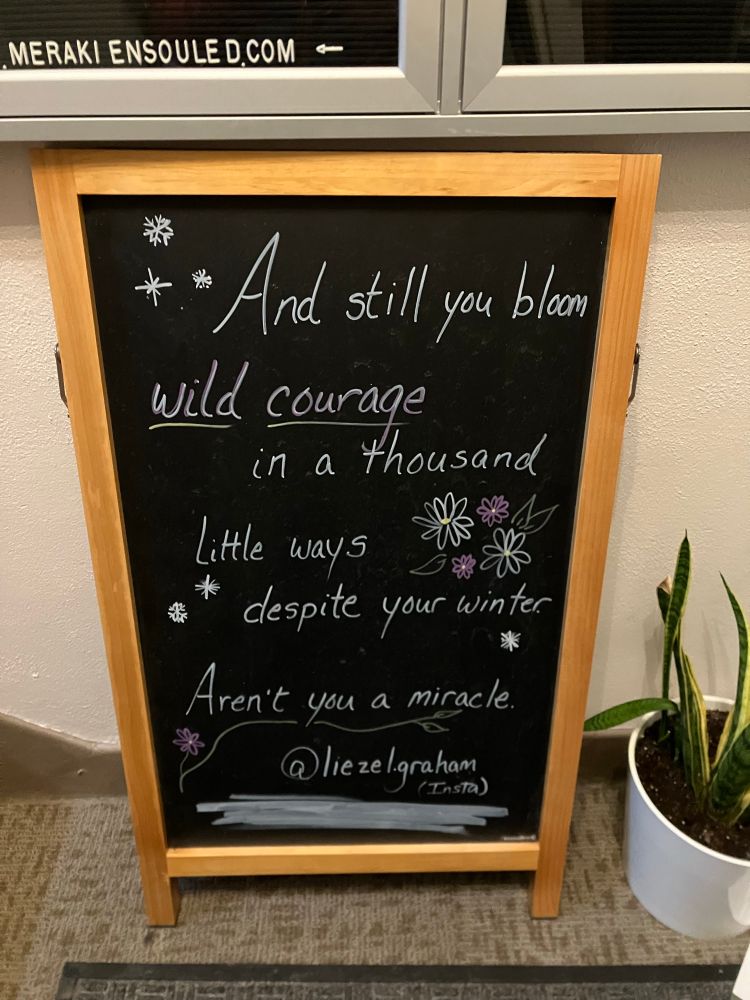 .MERAKI ENSOULED.COM ←
And still you bloom
wild courage
in a thousand
little ways
despite your winter.
Aren't you a miracle.
@liezel.graham
(Insta)